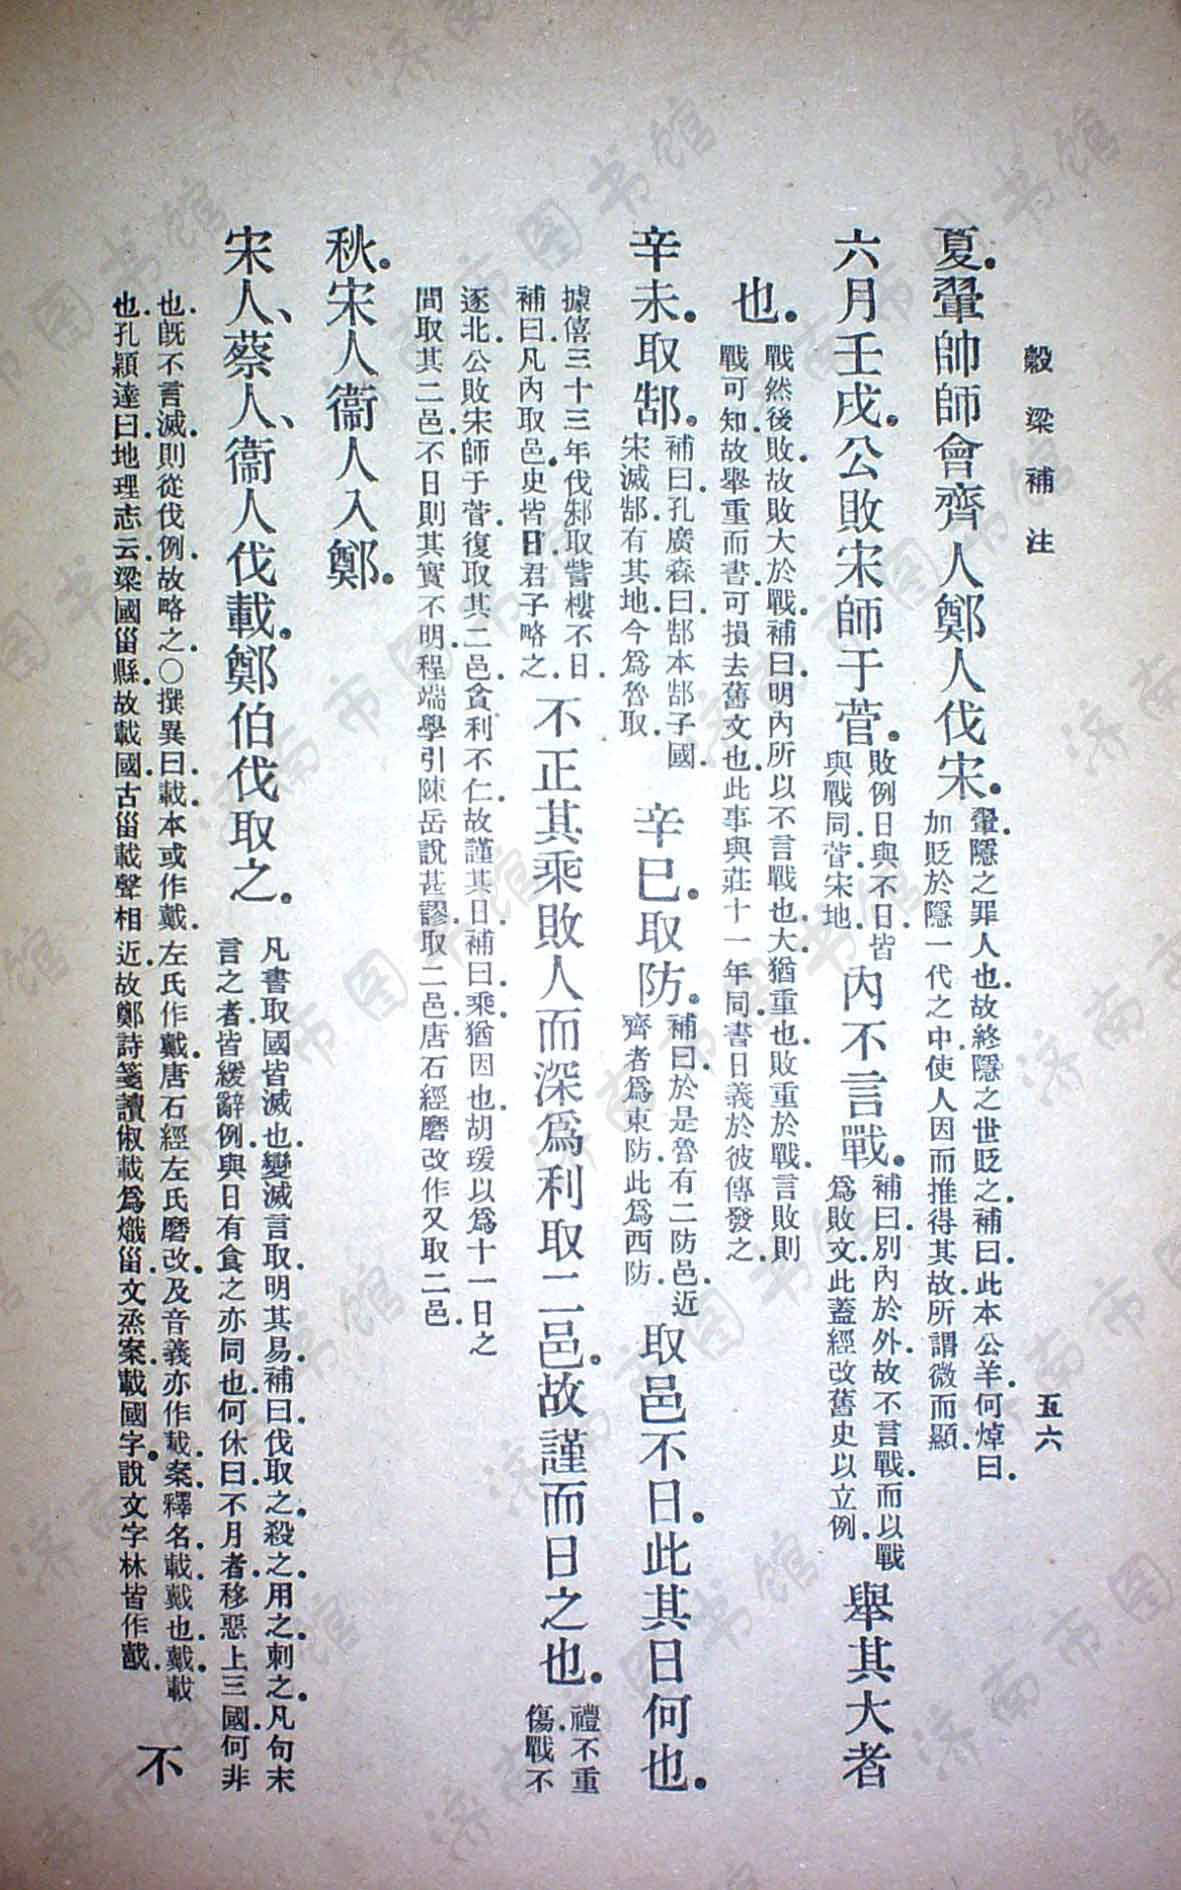 穀梁補注
五六
夏。翬帥師會齊人鄭人伐宋。
翬隱之罪人也。故終隱之世貶之。補曰。此本公羊。何焯曰。
加貶於隱一代之中。使人因而推得其故。所謂微而顯。
六月壬戌。公敗宋師于菅。
敗例日與不日皆
與戰同。菅宋地。
內不言戰。
補曰。別內於外。故不言戰。而以戰
爲敗文。此蓋經改舊史以立例。
舉其大者
也。
戰然後敗。故敗大於戰。補曰。明內所以不言戰也。大猶重也。敗重於戰。言敗則
戰可知。故舉重而書。可損去舊文也。此事與莊十一年同。書日義於彼傳發之。
辛未。取郜。
補曰。孔廣森曰。郜本郜子國。
宋滅郜。有其地。今爲魯取。
辛巳。取防。
補曰。於是魯有二防邑。近
齊者爲東防。此爲西防。
取邑不日。此其日何也。
據僖三十三年伐邾取訾樓不日。
補曰。凡內取邑。史皆日。君子略之。
不正其乘敗人而深爲利取二邑。故謹而日之也。
禮不重
傷。戰不
逐北。公敗宋師于菅。復取其二邑。貪利不仁。故謹其日。補曰。乘猶因也。胡瑗以爲十一日之
間取其二邑。不日則其實不明。程端學引陳岳說甚謬。取二邑。唐石經磨改作又取二邑。
秋。宋人衞人入鄭。
宋人、蔡人、衞人伐載。鄭伯伐取之。
凡書取國皆滅也。變滅言取。明其易。補曰。伐取之。殺之。用之。刺之。凡句末
言之者。皆緩辭。例與日有食之亦同也。何休曰。不月者。移惡上三國。何非
也。既不言滅。則從伐例。故略之。〇撰異曰。載。本或作戴。左氏作戴。唐石經左氏磨改。及音義亦作載。案釋名。載戴也。戴載
也。孔穎達曰。地理志云。梁國甾縣。故載國。古甾載聲相近。故鄭詩箋讀俶載爲熾甾。文烝案。載國字。說文字林皆作
不
济南市图书馆